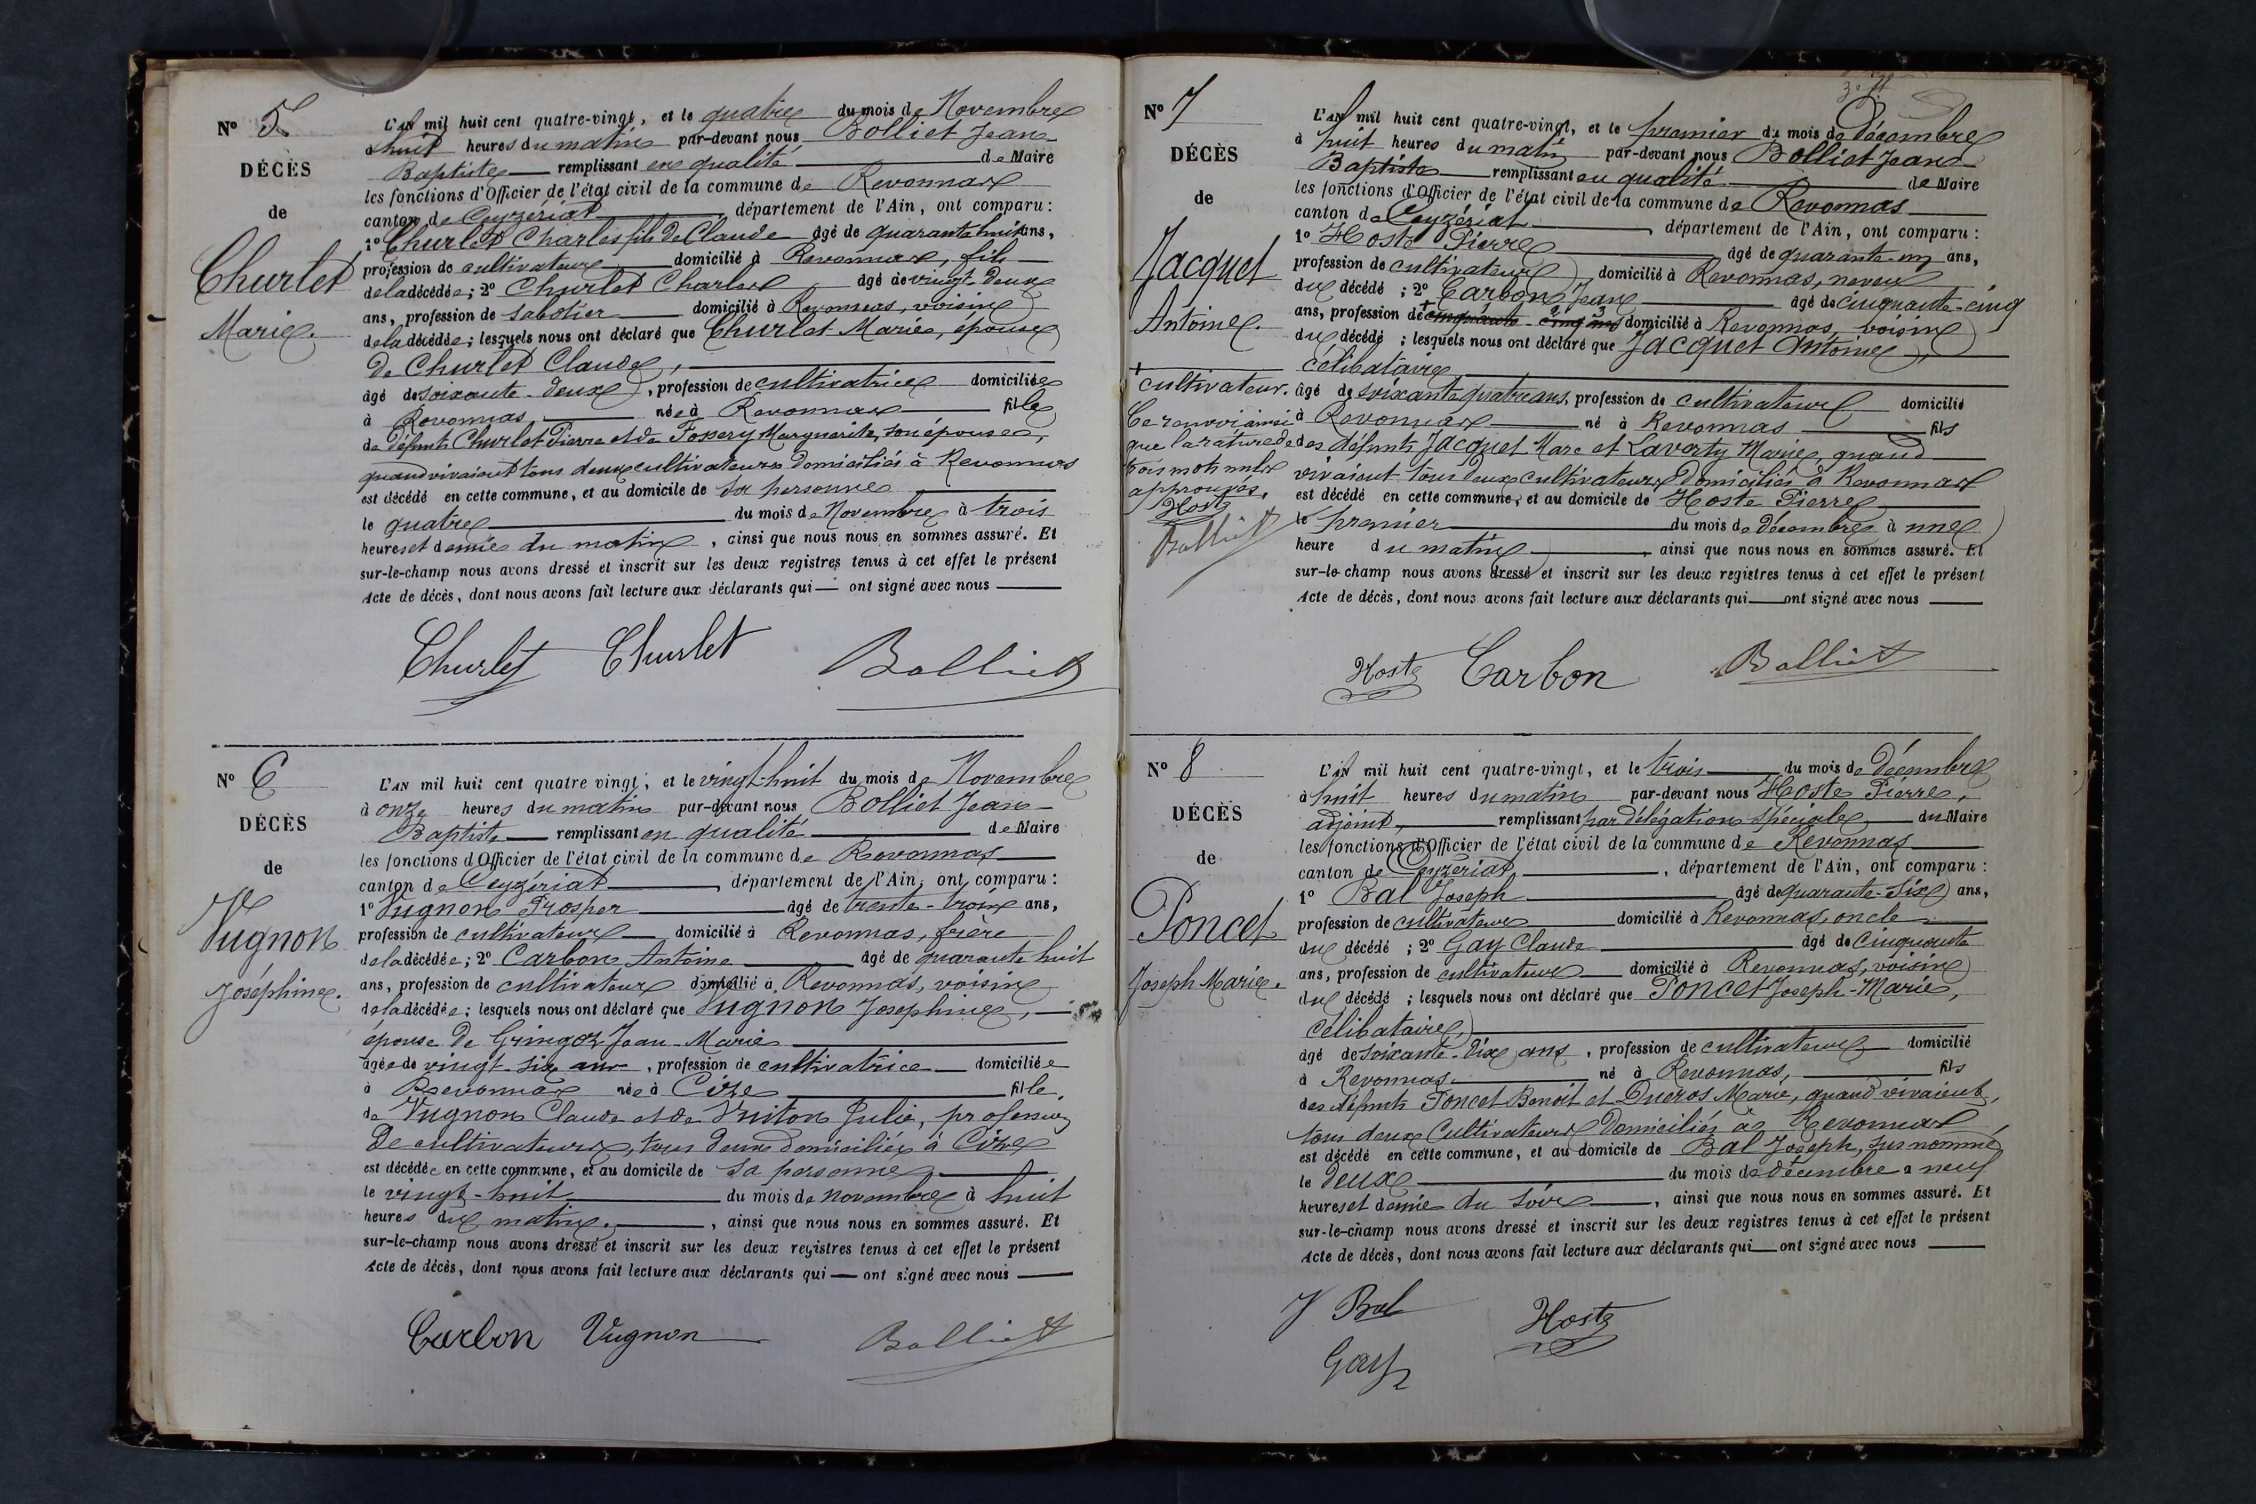 N° 5
DÉCÈS
de
Churlet
Marie.
L'AN mil huit cent quatre-vingt, et le quatre du mois de Novembre
à huit heures du matin par-devant nous Bolliet Jean
Baptiste remplissant en qualité de Maire
les fonctions d'Officier de l'état civil de la commune de Revonnas
canton de Ceyzériat, département de l'Ain, ont comparu :
1° Churlet Charles fils de Claude âgé de quarante huit ans,
profession de cultivateur domicilié à Revonnas, fils
de la décédée ; 2° Churlet Charles âgé de vingt-deux
ans, profession de sabotier domicilié à Revonnas, voisin
de la décédée ; lesquels nous ont déclaré que Churlet Marie, épouse
de Churlet Claude,
âgé de soixante-deux, profession de cultivatrice domiciliée
à Revonnas, née à Revonnas fille
de défunts Churlet Pierre et de Fossery Marguerite, son épouse,
quand vivaient tous deux cultivateurs domiciliés à Revonnas
est décédé en cette commune, et au domicile de sa personne
le quatre du mois de Novembre à trois
heures et demie du matin, ainsi que nous nous en sommes assuré. Et
sur-le-champ nous avons dressé et inscrit sur les deux registres tenus à cet effet le présent
Acte de décès, dont nous avons fait lecture aux déclarants qui ont signé avec nous
Churlet Churlet Bolliet
N° 6
DÉCÈS
de
Vugnon
Joséphine.
L'AN mil huit cent quatre vingt, et le vingt-huit du mois de Novembre
à onze heures du matin par-devant nous Bolliet Jean
Baptiste remplissant en qualité de Maire
les fonctions d'Officier de l'état civil de la commune de Revonnas
canton de Ceyzériat, département de l'Ain, ont comparu :
1° Vugnon Prosper âgé de trente-trois ans,
profession de cultivateur domicilié à Revonnas, frère
de la décédée ; 2° Carbon Antoine âgé de quarante huit
ans, profession de cultivateur domicilié à Revonnas, voisin
de la décédée ; lesquels nous ont déclaré que Vugnon Josephine,
épouse de Gringoz Jean-Marie
âgée de vingt-six ans, profession de cultivatrice domiciliée
à Revonnas née à Cize fille
de Vugnon Claude et de Vuiton Julie, profession
de cultivateurs, tous deux domiciliés à Cize
est décédée en cette commune, et au domicile de sa personne
le vingt-huit du mois de novembre à huit
heures du matin, ainsi que nous nous en sommes assuré. Et
sur-le-champ nous avons dressé et inscrit sur les deux registres tenus à cet effet le présent
Acte de décès, dont nous avons fait lecture aux déclarants qui ont signé avec nous
Carbon Vugnon Bolliet
N° 7
DÉCÈS
de
Jacquet
Antoine.
cultivateur.
Ce renvoi ainsi
que la rature de
trois mots nuls
approuvés.
Hoste
Bolliet
L'AN mil huit cent quatre-vingt, et le premier du mois de décembre
à huit heures du matin par-devant nous Bolliet Jean
Baptiste remplissant en qualité de Maire
les fonctions d'Officier de l'état civil de la commune de Revonnas
canton de Ceyzériat, département de l'Ain, ont comparu :
1° Hoste Pierre âgé de quarante-un ans,
profession de cultivateur domicilié à Revonnas, neveu
du décédé ; 2° Carbon Jean âgé de cinquante-cinq
ans, profession de + cinquante-cinq ans domicilié à Revonnas, voisin
du décédé ; lesquels nous ont déclaré que Jacquet Antoine,
célibataire,
âgé de soixante quatre ans, profession de cultivateur domicilié
à Revonnas né à Revonnas fils
des défunts Jacquet Marc et Laverty Marie, quand
vivaient tous deux cultivateurs domiciliés à Revonnas
est décédé en cette commune, et au domicile de Hoste Pierre
le premier du mois de décembre à une
heure du matin, ainsi que nous nous en sommes assuré. Et
sur-le-champ nous avons dressé et inscrit sur les deux registres tenus à cet effet le présent
Acte de décès, dont nous avons fait lecture aux déclarants qui ont signé avec nous
Hoste Carbon Bolliet
N° 8
DÉCÈS
de
Poncet
Joseph Marie.
L'AN mil huit cent quatre-vingt, et le trois du mois de Décembre
à huit heures du matin par-devant nous Hoste Pierre,
adjoint, remplissant par délégation spéciale du Maire
les fonctions d'Officier de l'état civil de la commune de Revonnas
canton de Ceyzériat, département de l'Ain, ont comparu :
1° Bal Joseph âgé de quarante-six ans,
profession de cultivateur domicilié à Revonnas, oncle
du décédé ; 2° Gay Claude âgé de cinquante
ans, profession de cultivateur domicilié à Revonnas, voisin
du décédé ; lesquels nous ont déclaré que Poncet Joseph-Marie,
célibataire,
âgé de soixante-dix ans, profession de cultivateur domicilié
à Revonnas né à Revonnas, fils
des défunts Poncet Benoit et Ducros Marie, quand vivaient,
tous deux Cultivateurs Domiciliés à Revonnas
est décédé en cette commune, et au domicile de Bal Joseph, sus nommé
le deux du mois de décembre à neuf
heures et demie du soir, ainsi que nous nous en sommes assuré. Et
sur-le-champ nous avons dressé et inscrit sur les deux registres tenus à cet effet le présent
Acte de décès, dont nous avons fait lecture aux déclarants qui ont signé avec nous
J Bal Hoste
Gay